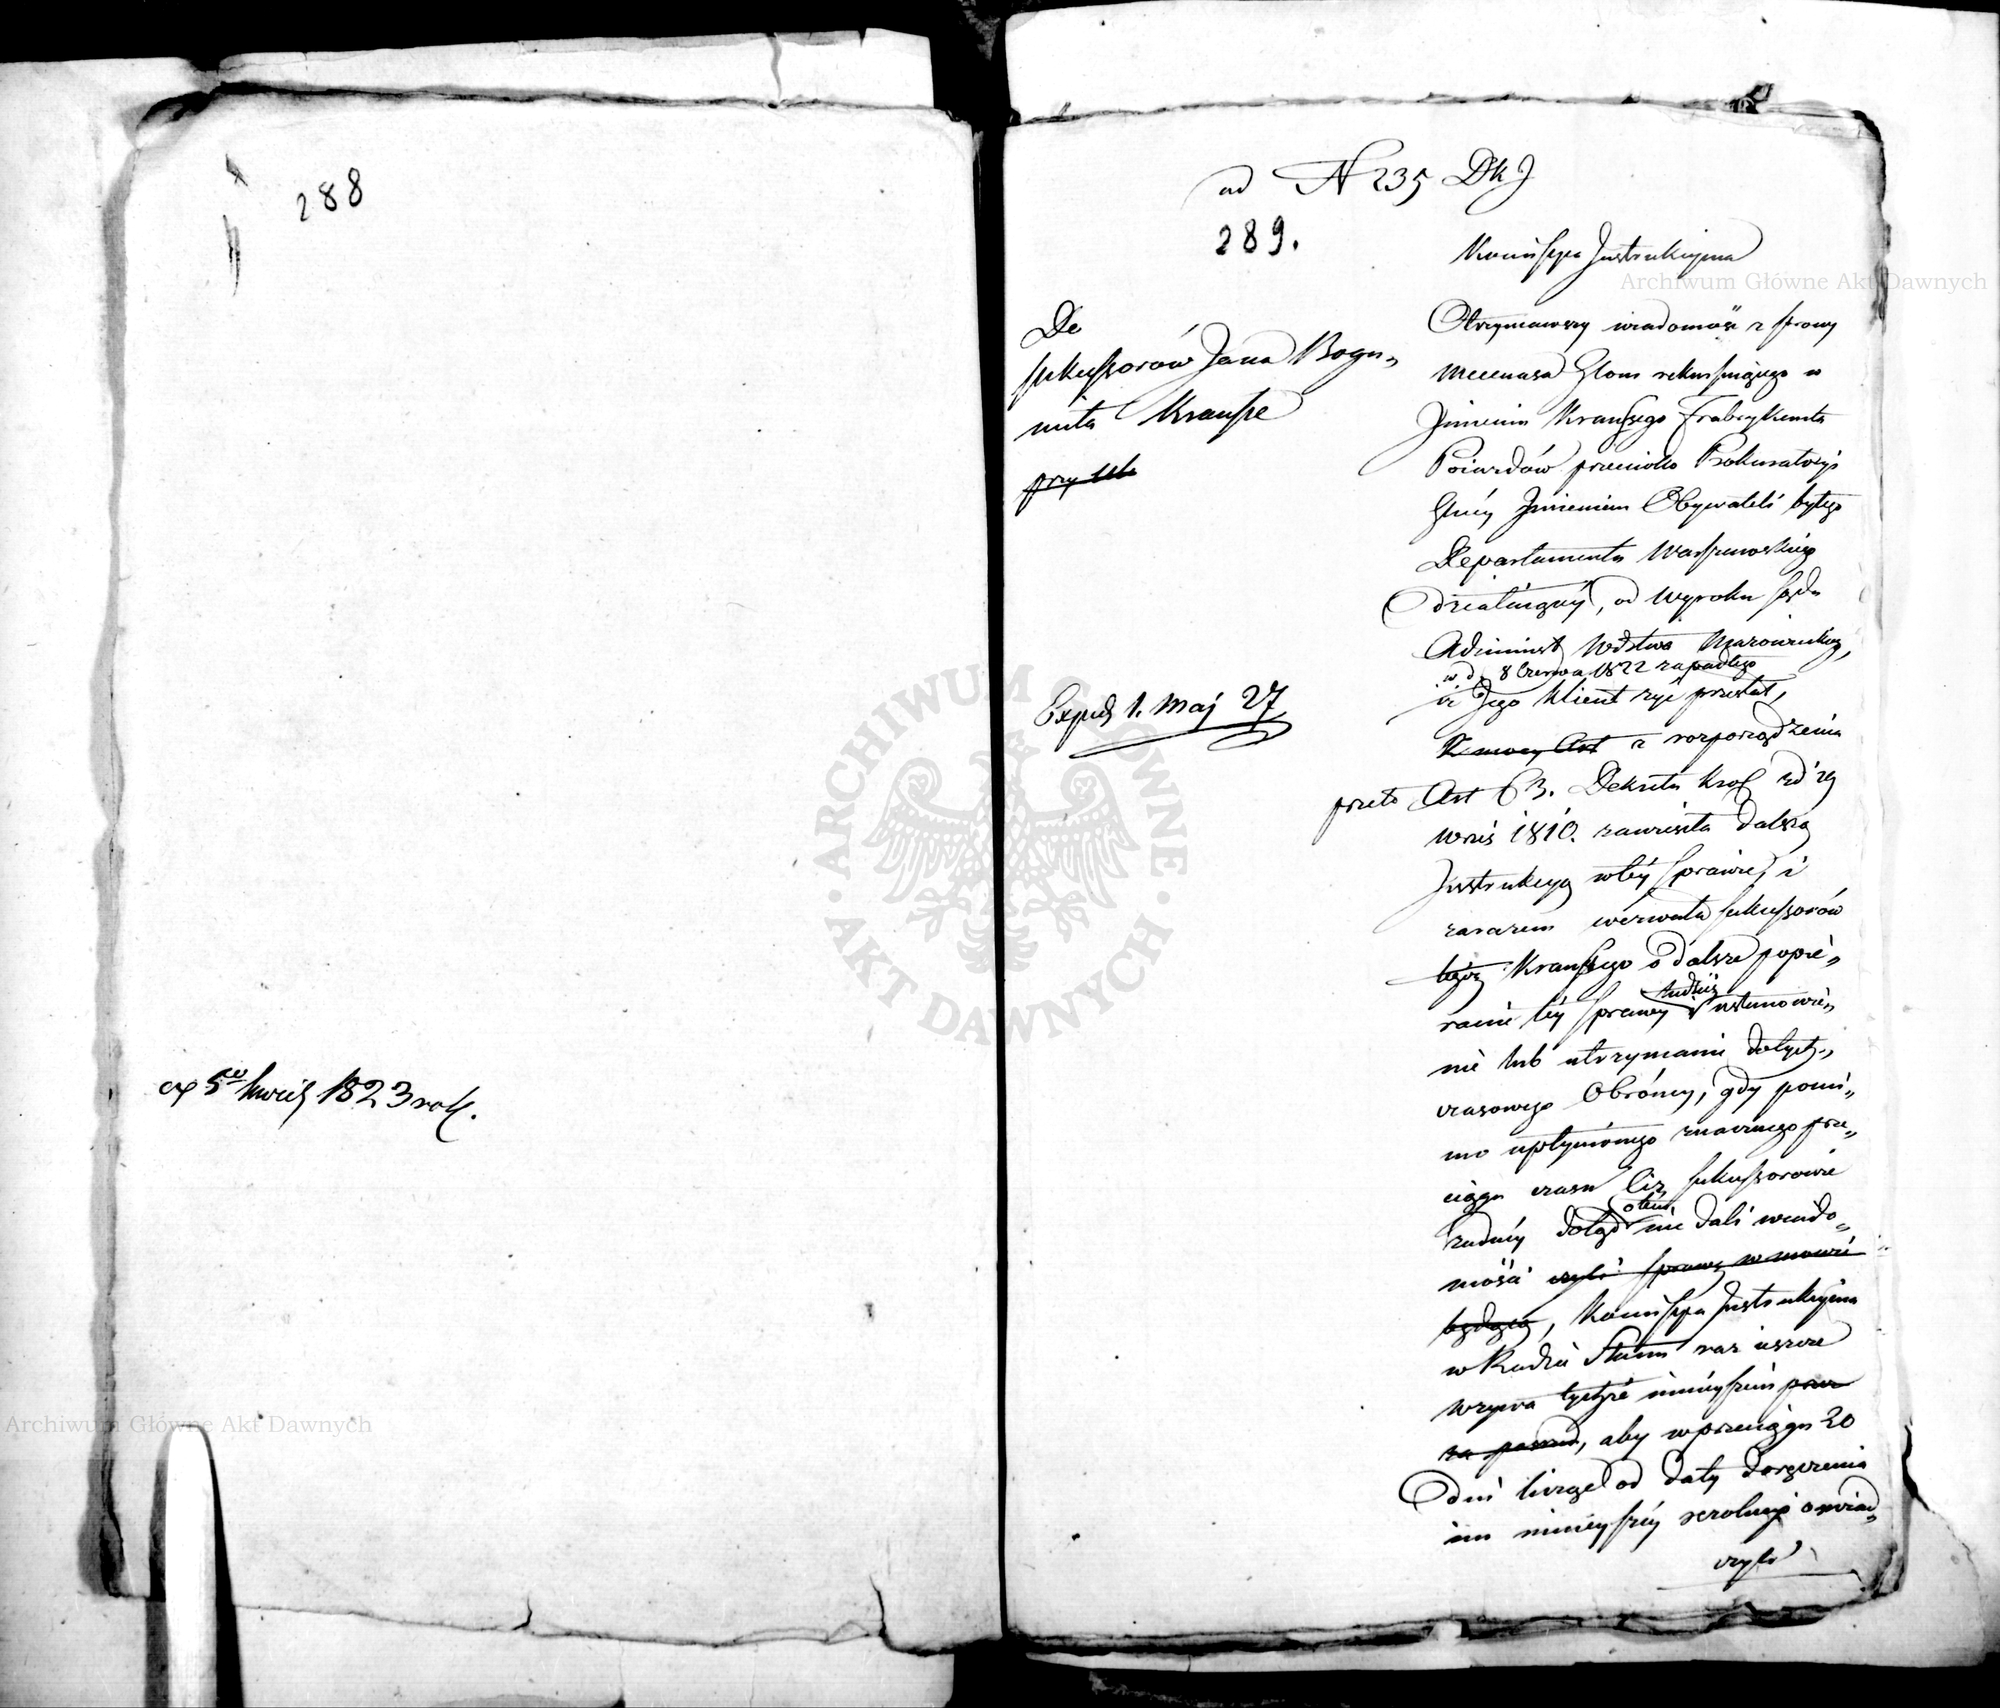 288
exp 5go kwiet 1823 rok.
ad N 235 DkJ
289.
Do
sukcessorów Jana Bogu„
miła Krausse
przy ul.
Exped 1. Maj 27
Kommissya Instrukcyjna
Otrzymawszy wiadomość z strony
Mecenasa Glom rekursuiącego w
Jmieniu Kraussego Fabrykanta
Poiazdów przeciwko Prokuratoryi
Głney Jmieniem Obywateli byłego
Departamentu Warszawskiego
działaiącey, od Wyroku sądu
Administ Wdztwa Mazowieckieg,
w d. 8 Czerwca 1822 zapadłego
iż Jego Klient żyć przestał,
Z mocy Art z rozporządzenia
przeto Art 63. Dekretu Krol zd 19
Wrześ 1810. zawiesiła dalszą
Instrukcyą wtey sprawie, i
zarazem wezwała sukcessorów
tegoż Kraussego o dalsze popie„
ranie tey sprawy tudzież ustanowie„
nie lub utrzymanie dotych„
czasowego Obrońcy, gdy pomi„
mo upłynionego znacznego prze„
ciągu czasu ciż sukcessorowie
żadney dotąd otem nie dali wiado„
mości czyli sprawę wmowie
będącą, Kommissya Instrukcyjna
w Radzie Stanu raz ieszcze
wzywa tychże ninieyszem
, aby wprzeciągu 20
dni licząc od daty doręczenia
im ninieyszey rezolucyi oswiad„
czyli
Archiwum Główne Akt Dawnych
Archiwum Główne Akt Dawnych
ARCHIWUM GŁÓWNE · AKT DAWNYCH ·